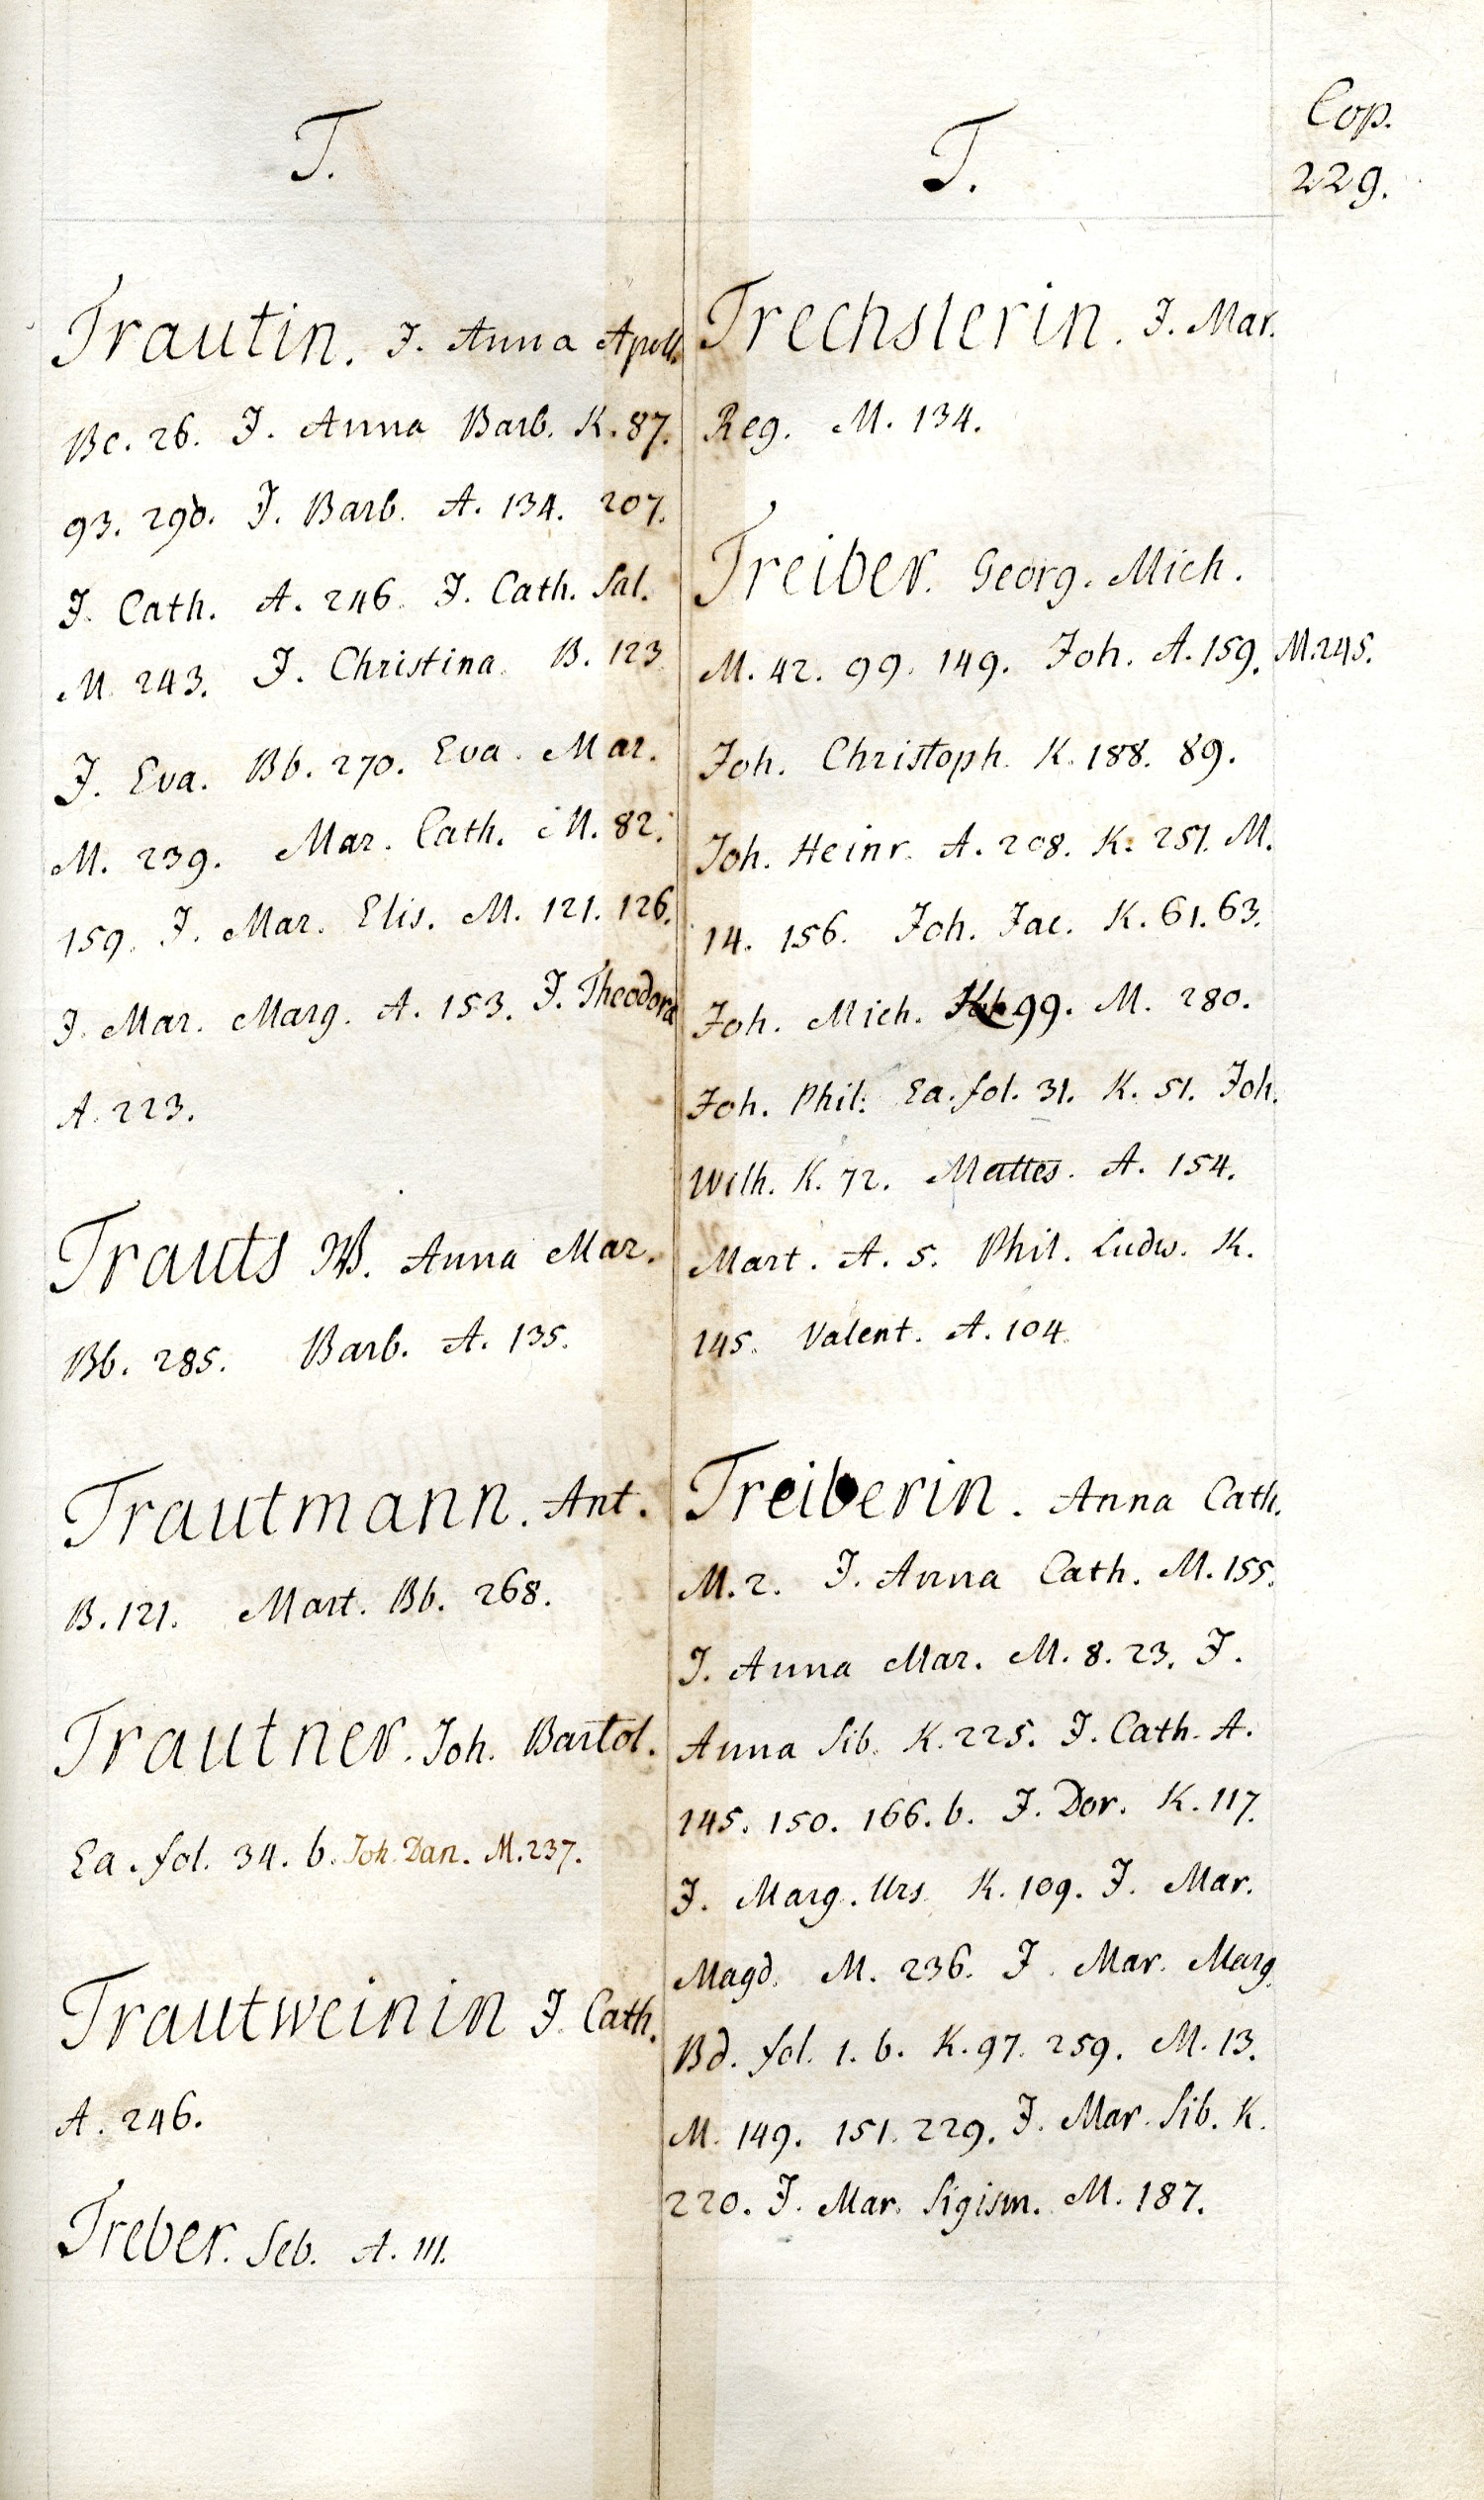 T.
Trautin. J. Anna Apoll.
Bc. 26. J. Anna Barb. K. 87.
93. 290. J. Barb. A. 134. 207.
J. Cath. A. 246. J. Cath. Sal.
M. 243. J. Christina. B. 123
J. Eva. Bb. 270. Eva. Mar.
M. 239. Mar. Cath. M. 82.
159. J. Mar. Elis. M. 121. 126.
J. Mar. Marg. A. 153. J. Theodora
A. 223.
Trauts W. Anna Mar.
Bb. 285. Barb. A. 135.
Trautmann. Ant.
B. 121. Mart. Bb. 268.
Trautner. Joh. Bartol.
Ea. fol. 34. b. Joh. Dan. M. 237.
Trautweinin J. Cath.
A. 246.
Treber. Seb. A. 111.
T.
Cop.
229.
Trechslerin. J. Mar.
Reg. M. 134.
Treiber. Georg. Mich.
M. 42. 99. 149. Joh. A. 159. M. 245.
Joh. Christoph. K. 188. 89.
Joh. Heinr. A. 208. K. 251. M.
14. 156. Joh. Jac. K. 61. 63.
Joh. Mich. 99. M. 280.
Joh. Phil. Ea. fol. 31. K. 51. Joh.
Wilh. K. 72. Mattes. A. 154.
Mart. A. 5. Phil. Ludw. K.
145. Valent. A. 104
Treiberin. Anna Cath.
M. 2. J. Anna Cath. M. 155.
J. Anna Mar. M. 8. 23. J.
Anna Sib. K. 225. J. Cath. A.
145. 150. 166. b. J. Dor. K. 117.
J. Marg. Urs. K. 109. J. Mar.
Magd. M. 236. J. Mar. Marg.
Bd. fol. 1. b. K. 97. 259. M. 13.
M. 149. 151. 229. J. Mar. Sib. K.
220. J. Mar. Sigism. M. 187.